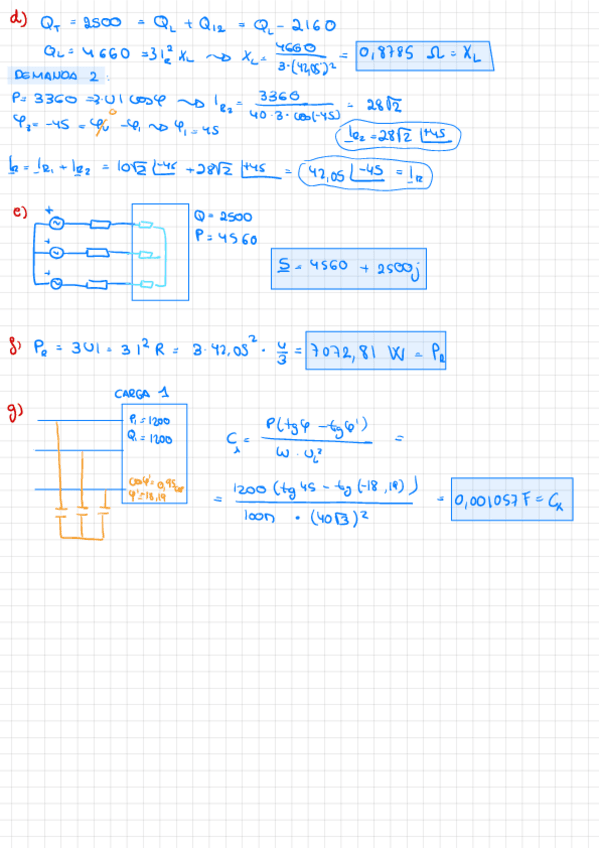 d) Q_T = 2500 = Q_L + Q_12 = Q_L - 2160
Q_L = 4660 = 3 I_R² X_L ⇝ X_L = 4660 / 3·(42,05)² = 0,8785 Ω = X_L
DEMANDA 2
P = 3360 = 3·U I cosφ ⇝ I_R2 = 3360 / 40·3·cos(-45) = 28√2
φ_2 = -45 = φ_U - φ_I ⇝ φ_I = 45
0
I_R2 = 28√2 |+45
I_R = I_R1 + I_R2 = 10√2 |-45 + 28√2 |+45 = 42,05 |-45 = I_R
e)
Q = 2500
P = 4560
S = 4560 + 2500j
f) P_R = 3UI = 3 I² R = 3·42,05² · 4/3 = 7072,81 W = P_R
g)
CARGA 1
P_1 = 1200
Q_1 = 1200
cosφ' = 0,95
φ' = 18,19
C_λ = P(tgφ - tgφ') / ω · U_L² =
= 1200 (tg 45 - tg (-18,19)) / 100π · (40√3)² = 0,001057 F = C_λ